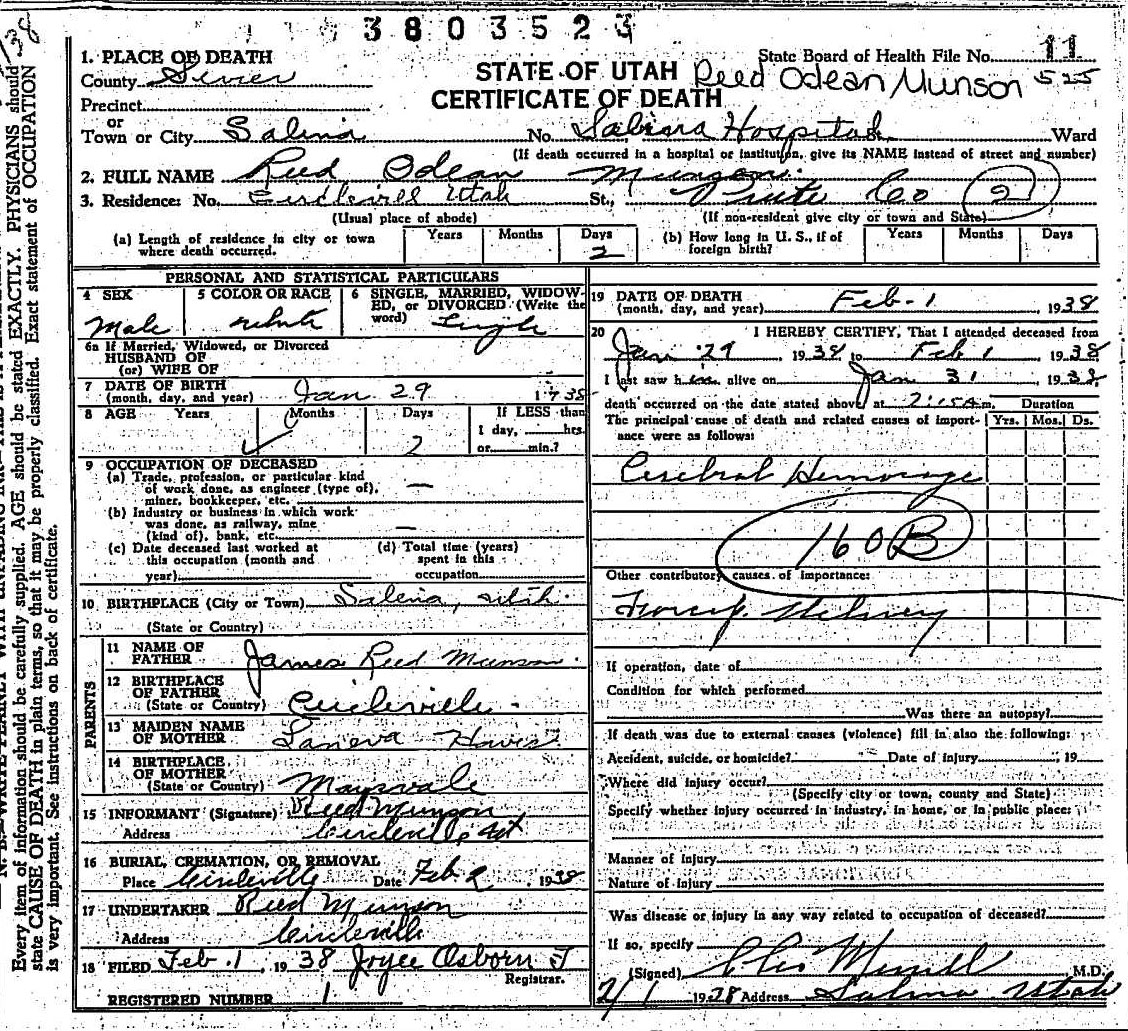 38
3803523
1. PLACE OF DEATH
County Sevier
Precinct
or
Town or City Salina
STATE OF UTAH
CERTIFICATE OF DEATH
State Board of Health File No. 11
Reed Odean Munson 525
No. Salina Hospital St. Ward
(If death occurred in a hospital or institution, give its NAME instead of street and number)
2. FULL NAME Reed Odean Munson
3. Residence: No. Circleville Utah St., Piute Co 2
(Usual place of abode) (If non-resident give city or town and State)
(a) Length of residence in city or town where death occurred. Years Months Days 2
(b) How long in U. S., if of foreign birth? Years Months Days
PERSONAL AND STATISTICAL PARTICULARS
4 SEX Male
5 COLOR OR RACE white
6 SINGLE, MARRIED, WIDOWED, or DIVORCED (Write the word) Single
6a If Married, Widowed, or Divorced
HUSBAND OF
(or) WIFE OF
7 DATE OF BIRTH
(month, day, and year) Jan 29 1938
8 AGE Years Months Days 2
If LESS than
1 day, hrs.
or min.?
9 OCCUPATION OF DECEASED
(a) Trade, profession, or particular kind
of work done, as engineer (type of),
miner, bookkeeper, etc. —
(b) Industry or business in which work
was done, as railway, mine
(kind of), bank, etc. —
(c) Date deceased last worked at
this occupation (month and
year)
(d) Total time (years)
spent in this
occupation
10 BIRTHPLACE (City or Town) Salina, Utah.
(State or Country)
PARENTS
11 NAME OF
FATHER James Reed Munson.
12 BIRTHPLACE
OF FATHER
(State or Country) Circleville -
13 MAIDEN NAME
OF MOTHER Laneva
14 BIRTHPLACE
OF MOTHER
(State or Country) Marysvale
15 INFORMANT (Signature) Reed Munson
Address Circleville, Ut
16 BURIAL, CREMATION, OR REMOVAL
Place Circleville Date Feb. 2, 1938
17 UNDERTAKER Reed Munson
Address Circleville
18 FILED Feb. 1, 1938 Joyce Osborn
Registrar.
REGISTERED NUMBER 1
19 DATE OF DEATH
(month, day, and year) Feb - 1, 1938
20 I HEREBY CERTIFY, That I attended deceased from
Jan 29, 1938 to Feb 1, 1938
I last saw him alive on Jan 31, 1938
death occurred on the date stated above, at 2:15 A m. Duration
The principal cause of death and related causes of importance were as follows: Yrs. Mos. Ds.
Cerebral Hemorrage
160B
Other contributory causes of importance:
Forcep Delivery
If operation, date of
Condition for which performed
Was there an autopsy?
If death was due to external causes (violence) fill in also the following:
Accident, suicide, or homicide? Date of injury , 19
Where did injury occur?
(Specify city or town, county and State)
Specify whether injury occurred in industry, in home, or in public place:
Manner of injury
Nature of injury
Was disease or injury in any way related to occupation of deceased?
If so, specify
(Signed) M.D.
2/1 1938 Address Salina Utah
Every item of information should be carefully supplied. AGE should be stated EXACTLY. PHYSICIANS should
state CAUSE OF DEATH in plain terms, so that it may be properly classified. Exact statement of OCCUPATION
is very important. See instructions on back of certificate.